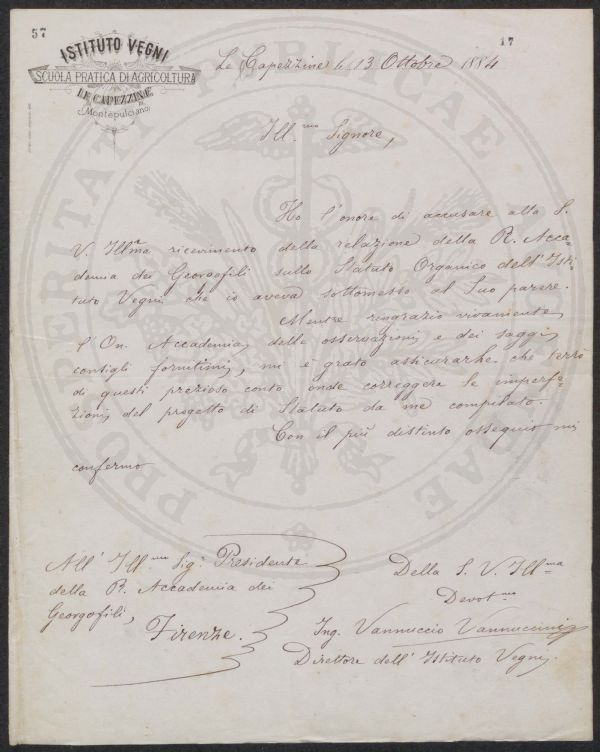 57
17
ISTITUTO VEGNI
SCUOLA PRATICA DI AGRICOLTURA
LE CAPEZZINE
(Montepulciano)
Le Capezzine li 13 Ottobre 1884
Ill.mo Signore,
Ho l'onore di accusare alla S.
V. Illma ricevimento della relazione della R. Acca-
demia dei Georgofili sullo Statuto Organico dell'Isti-
tuto Vegni che io aveva sottomesso al Suo parere.
Mentre ringrazio vivamente
l'On. Accademia, delle osservazioni e dei saggi
consigli fornitimi, mi è grato assicurarLe che terrò
di questi prezioso conto onde correggere le imperfe-
zioni del progetto di Statuto da me compilato.
Con il più distinto ossequio mi
confermo
All' Ill.mo Sig. Presidente
della R. Accademia dei
Georgofili,
Firenze.
Della S. V. Ill.ma
Devot.mo
Ing. Vannuccio Vannuccini
Direttore dell' Istituto Vegni.
PROSPERITATI PUBLICAE